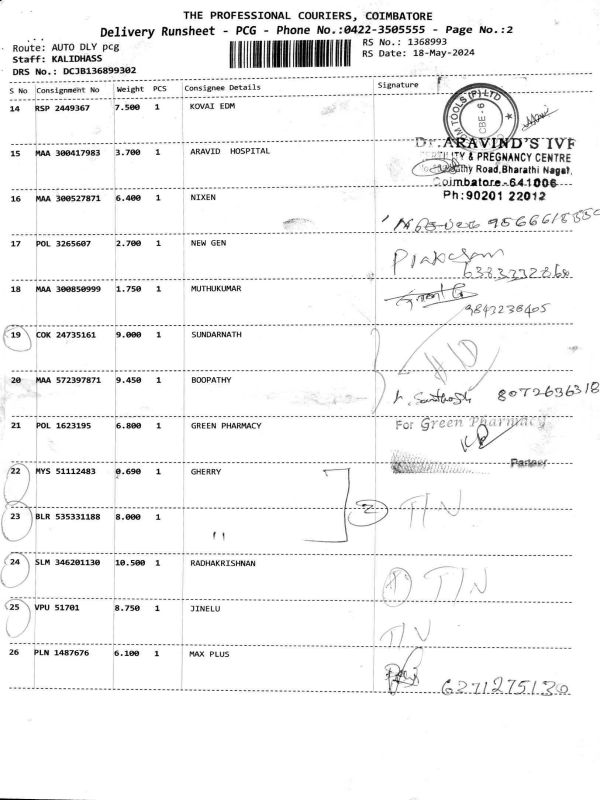 THE PROFESSIONAL COURIERS, COIMBATORE
Delivery Runsheet - PCG - Phone No.:0422-3505555 - Page No.:2
Route: AUTO DLY pcg
Staff: KALIDHASS
DRS No.: DCJB136899302
RS No.: 1368993
RS Date: 18-May-2024
S No Consignment No Weight PCS Consignee Details Signature
14 RSP 2449367 7.500 1 KOVAI EDM
TOOLS (P) LTD
CBE-6
15 MAA 300417983 3.700 1 ARAVID HOSPITAL
Dr.ARAVIND'S IVF
& PREGNANCY CENTRE
Road,Bharathi Nagar,
Coimbatore-641006
Ph:90201 22012
16 MAA 300527871 6.400 1 NIXEN
17 POL 3265607 2.700 1 NEW GEN
18 MAA 300850999 1.750 1 MUTHUKUMAR
9843238405
19 COK 24735161 9.000 1 SUNDARNATH
20 MAA 572397871 9.450 1 BOOPATHY
8072636318
21 POL 1623195 6.800 1 GREEN PHARMACY
For Green Pharmacy
Partner
22 MYS 51112483 0.690 1 GHERRY
2 T/N
23 BLR 535331188 8.000 1 "
24 SLM 346201130 10.500 1 RADHAKRISHNAN
T/N
25 VPU 51701 8.750 1 JINELU
T/N
26 PLN 1487676 6.100 1 MAX PLUS
6371275130